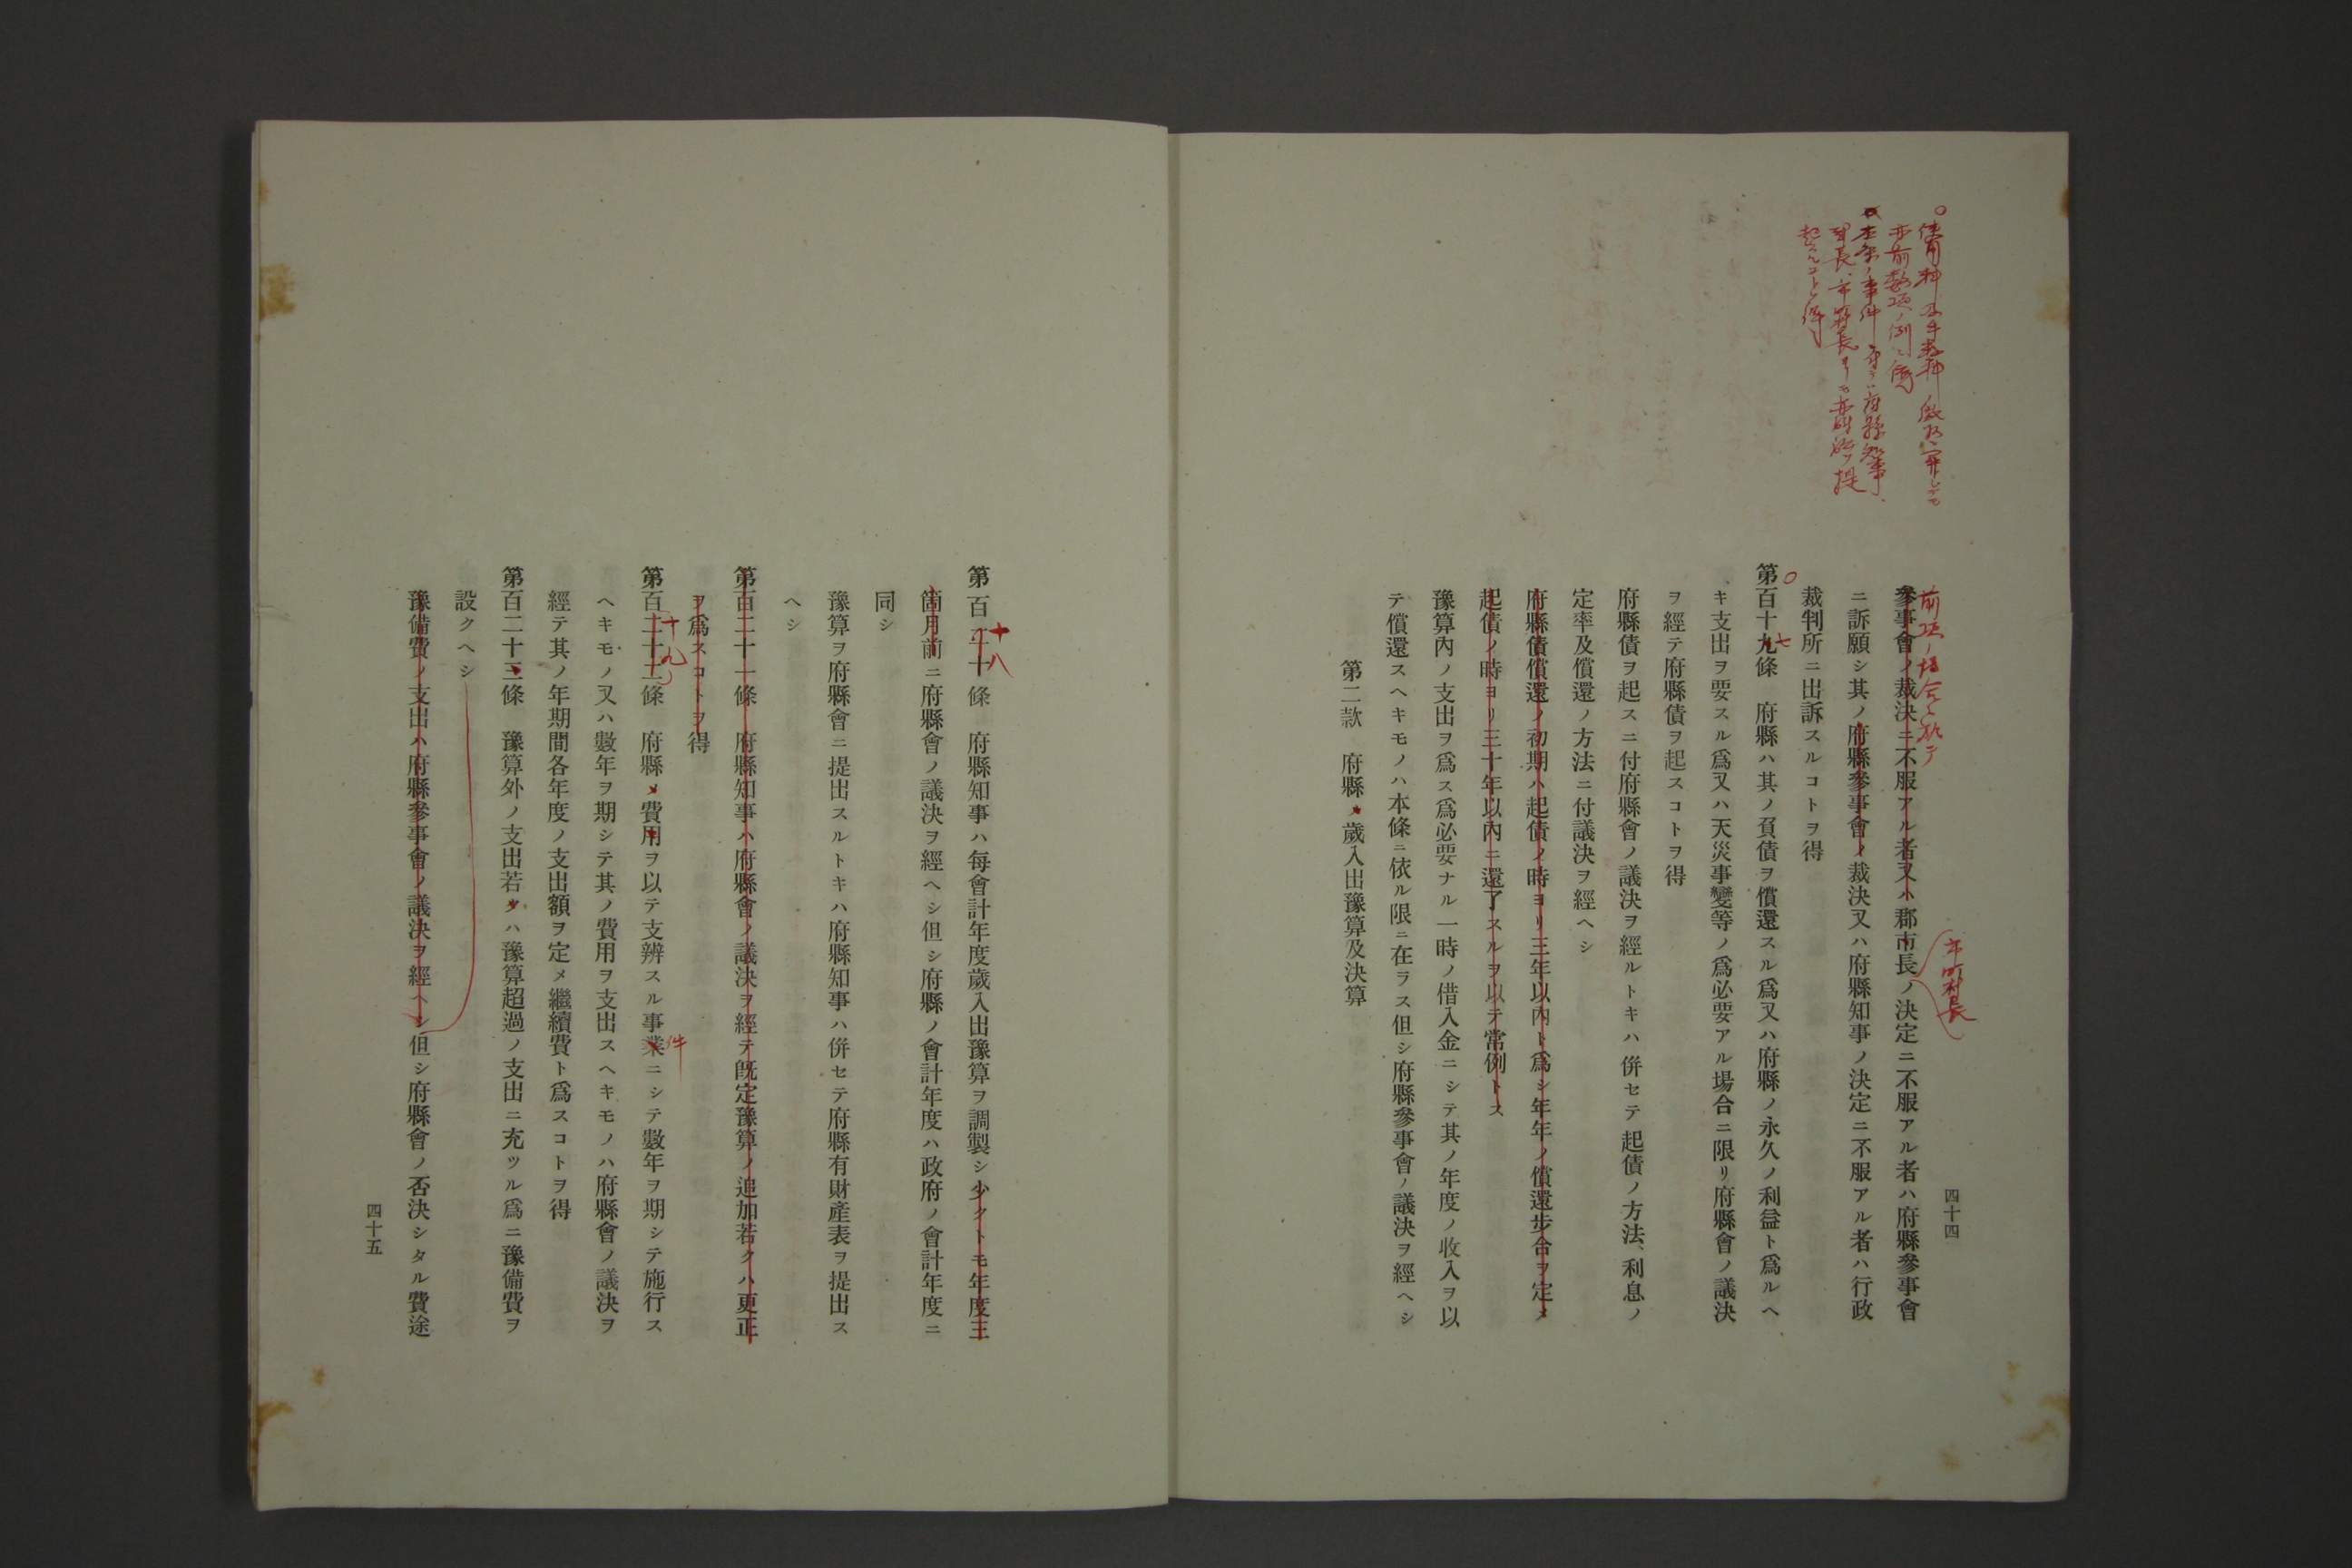 使用料及手数料ノ徴収ニ関シテモ
亦前数項ノ例ニ依ル
本条ノ事件ニ付テハ府縣知事、
郡長、市町村長ヨリモ亦訴訟ヲ提
起スルコトヲ得
四十四
前項ノ場合ニ於テ
市町村長
參事會ノ裁決ニ不服アル者又ハ郡市長ノ決定ニ不服アル者ハ府縣參事會
ニ訴願シ其ノ府縣參事會ノ裁決又ハ府縣知事ノ決定ニ不服アル者ハ行政
裁判所ニ出訴スルコトヲ得
七
第百十九條 府縣ハ其ノ負債ヲ償還スル爲又ハ府縣ノ永久ノ利益ト爲ルヘ
キ支出ヲ要スル爲又ハ天災事變等ノ爲必要アル場合ニ限リ府縣會ノ議決
ヲ經テ府縣債ヲ起スコトヲ得
府縣債ヲ起スニ付府縣會ノ議決ヲ經ルトキハ併セテ起債ノ方法、利息ノ
定率及償還ノ方法ニ付議決ヲ經ヘシ
府縣債償還ノ初期ハ起債ノ時ヨリ三年以內ト爲シ年年ノ償還步合ヲ定メ
起債ノ時ヨリ三十年以內ニ還了スルヲ以テ常例トス
豫算內ノ支出ヲ爲ス爲必要ナル一時ノ借入金ニシテ其ノ年度ノ收入ヲ以
テ償還スヘキモノハ本條ニ依ル限ニ在ラス但シ府縣參事會ノ議決ヲ經ヘシ
第二款 府縣ノ歲入出豫算及決算
十八
第百二十條 府縣知事ハ每會計年度歲入出豫算ヲ調製シ少クトモ年度三
箇月前ニ府縣會ノ議決ヲ經ヘシ但シ府縣ノ會計年度ハ政府ノ會計年度ニ
同シ
豫算ヲ府縣會ニ提出スルトキハ府縣知事ハ併セテ府縣有財產表ヲ提出ス
ヘシ
第百二十一條 府縣知事ハ府縣會ノ議決ヲ經テ旣定豫算ノ追加若クハ更正
ヲ爲スコトヲ得
十九
件
第百二十二條 府縣ノ費用ヲ以テ支辨スル事業ニシテ數年ヲ期シテ施行ス
ヘキモノ又ハ數年ヲ期シテ其ノ費用ヲ支出スヘキモノハ府縣會ノ議決ヲ
經テ其ノ年期間各年度ノ支出額ヲ定メ繼續費ト爲スコトヲ得
第百二十三條 豫算外ノ支出若クハ豫算超過ノ支出ニ充ツル爲ニ豫備費ヲ
設クヘシ
豫備費ノ支出ハ府縣參事會ノ議決ヲ經ヘシ但シ府縣會ノ否決シタル費途
四十五